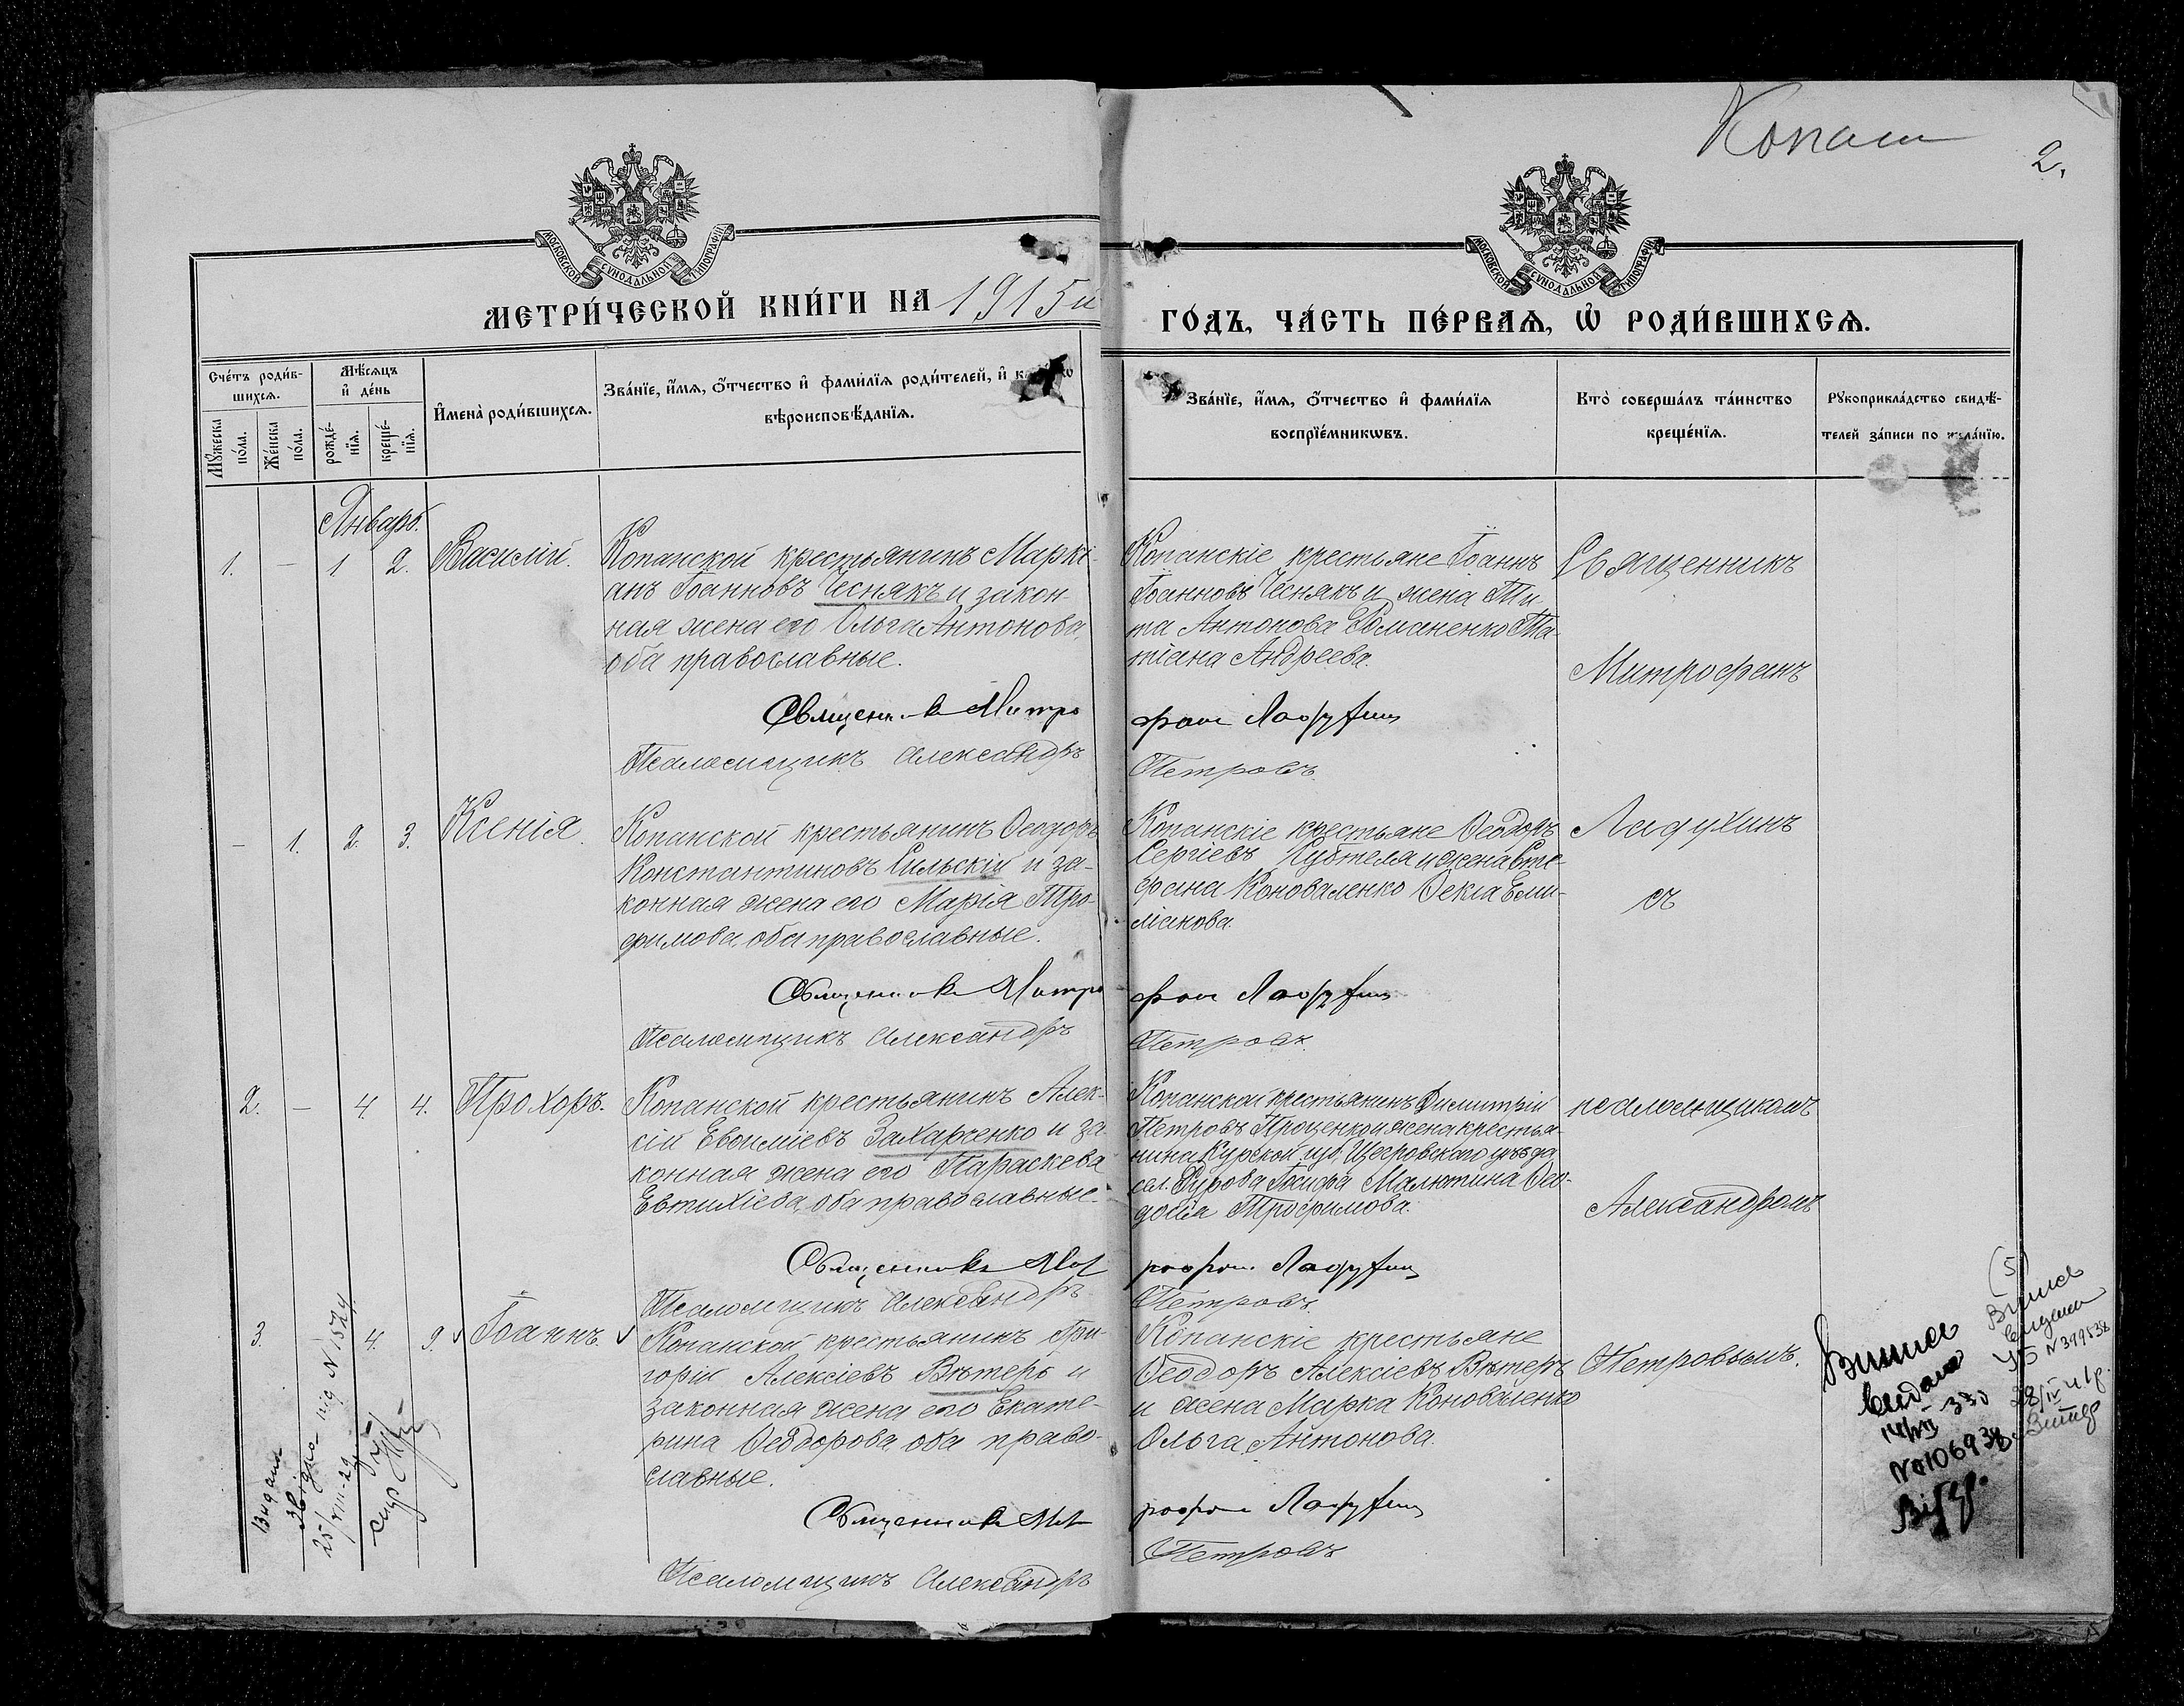 Копани
2.
МОСКОВСКОЙ СѴНОДАЛЬНОЙ ТИПОГРАФІИ
МОСКОВСКОЙ СѴНОДАЛЬНОЙ ТИПОГРАФІИ
МЕТРИ́ЧЕСКОЙ КНИ́ГИ НА 1915й
ГО́ДЪ, ЧА́СТЬ ПЕ́РВАѦ, Ѡ҆ РОДИ́ВШИХСѦ.
Сче́тъ роди́в-
шихсѧ.
Мꙋ́жеска по́ла.
Же́нска по́ла.
Мѣ́сѧцъ
и҆ де́нь
рожде́-
нїѧ.
креще́-
нїѧ.
И҆мена̀ роди́вшихсѧ.
Зва́нїе, и҆́мѧ, ѻ҆́тчество и҆ фами́лїѧ роди́телей, и҆
вѣроисповѣ́данїѧ.
Зва́нїе, и҆́мѧ, ѻ҆́тчество и҆ фами́лїѧ
воспрїе́мникѡвъ.
Кто̀ соверша́лъ та́инство
креще́нїѧ.
Рꙋкоприкла́дство свидѣ́-
телей за́писи по жела́нїю.
Январь.
1. — 1 2. Василій.
Копанской крестьянинъ Маркі-
анъ Іоанновъ Чеснякъ и закон-
ная жена его Ольга Антонова,
оба православные.
Копанскіе крестьяне Іоаннъ
Іоанновъ Чеснякъ и жена Ти-
та Антонова Романенко Та-
тіана Андреева.
Священникъ Митро
фанъ Ладухинъ
Псаломщикъ Александръ
Петровъ.
— 1. 2. 3. Ксенія.
Копанской крестьянинъ Ѳеодоръ
Константиновъ Сильскій и за-
конная жена его Марія Тро-
фимова, оба православные.
Копанскіе крестьяне Ѳеодоръ
Сергіевъ и жена Сте-
фана Коноваленко Ѳекла Еми-
ліанова.
Священникъ Митро
фанъ Ладухинъ
Псаломщикъ Александръ
Петровъ.
2. — 4. 4. Прохоръ.
Копанской крестьянинъ Алек-
сій Евѳиміевъ Захарченко и за-
конная жена его Параскева
Евтихіева, оба православные.
Копанской крестьянинъ Димитрій
Петровъ Проценко и жена крестья-
нина Курской губ. Щегровскаго уѣзда
Малютина Ѳео-
досія Трофимова.
Священникъ Мит
рофанъ Ладухинъ
Псаломщикъ Александръ
Петровъ.
3. 4. 9. Іоаннъ.
Копанской крестьянинъ Гри-
горій Алексіевъ Вѣтеръ и
законная жена его Екате-
рина Ѳеодорова, оба право-
славные.
Копанскіе крестьяне
Ѳеодоръ Алексіевъ Вѣтеръ
и жена Марка Коноваленко
Ольга Антонова.
Священникъ Мит
рофанъ Ладухинъ
Псаломщикъ Александръ
Петровъ
Священникъ
Митрофанъ
Ладухинъ
съ
псаломщикомъ
Александромъ
Петровымъ.
N 1524
25/VIII-29
(5)
N 399538
28/IV 41р.
N 106938